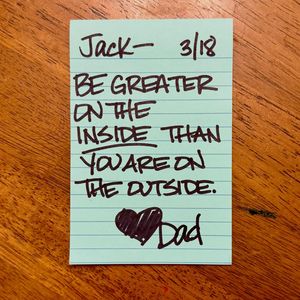 Jack— 3/18
BE GREATER
ON THE
INSIDE THAN
YOU ARE ON
THE OUTSIDE.
Dad